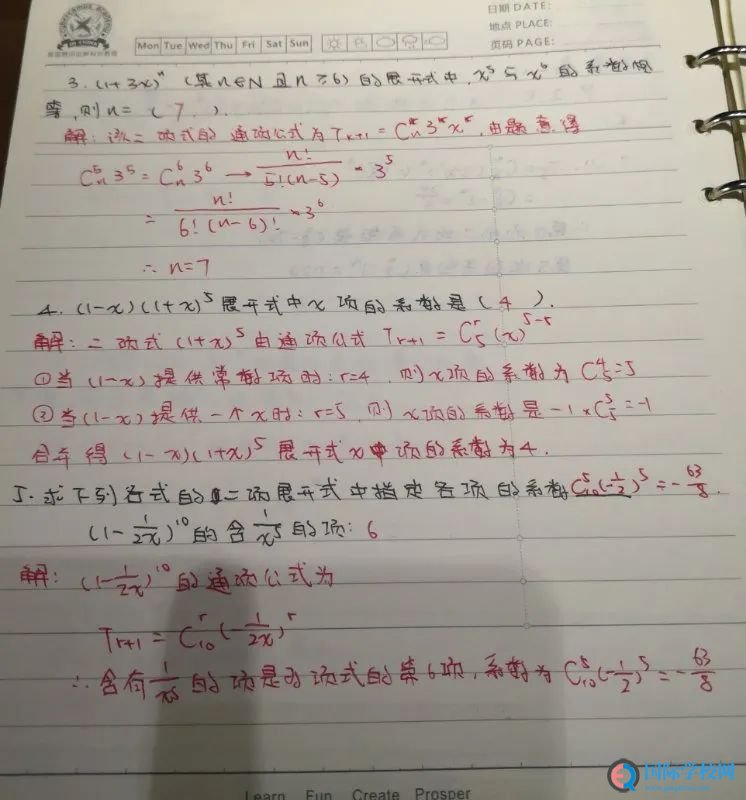 日期 DATE:
地点 PLACE:
页码 PAGE:
Mon Tue Wed Thu Fri Sat Sun
3. (1+3x)^n (其n∈N 且n≥6) 的展开式中, x^5 与 x^6 的系数相
等, 则n= ( 7 ).
解: 该二项式的通项公式为 T_{r+1} = C_n^r 3^r x^r, 由题意得
C_n^5 3^5 = C_n^6 3^6 → n!/5!(n-5) · 3^5
= n!/6!(n-6)! · 3^6
∴ n=7
4. (1-x)(1+x)^5 展开式中x项的系数是( 4 ).
解: 二项式 (1+x)^5 由通项公式 T_{r+1} = C_5^r (x)^{5-r}
①当 (1-x) 提供常数项时: r=4, 则x项的系数为 C_5^4=5
②当(1-x)提供一个x时: r=5, 则x项的系数是 -1×C_5^5=-1
合并得 (1-x)(1+x)^5 展开式x中项的系数为4.
5. 求下列各式的二项展开式中指定各项的系数 C_10^5(-1/2)^5 = -63/8.
(1-1/2x)^10 的含 1/x^5 的项: 6
解: (1-1/2x)^10 的通项公式为
T_{r+1} = C_10^r (-1/2x)^r
∴ 含有 1/x^5 的项是的项式的第6项, 系数为 C_10^5(-1/2)^5 = -63/8
国际学校网
Learn Fun Create Prosper